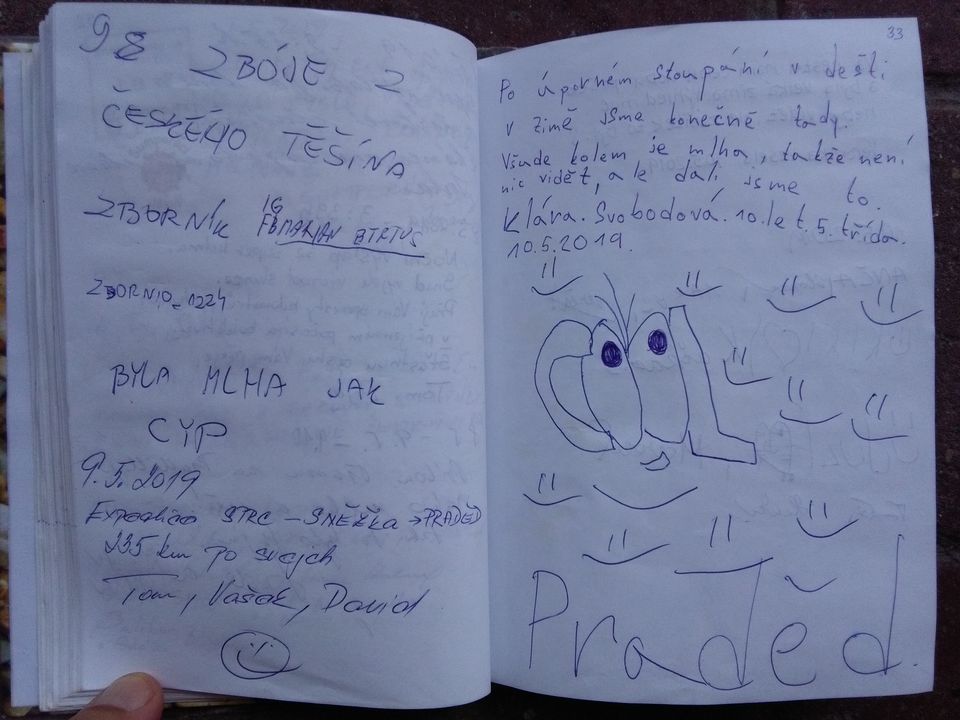 ZBÓJE Z
ČESKÉHO TĚŠÍNA
ZBORNÍK IG MARJAN
BYLA MLHA JAK
CYP
9.5.2019
STRC - SNĚŽKA → PRADĚD
235 km po svejch
Tom, Vašek, David
33
Po úporném stoupání v dešti
v zimě jsme konečně tady.
Všude kolem je mlha, takže není
nic vidět, ale dali jsme to.
Klára. Svobodová. 10. let. 5. třída.
10.5.2019.
COOL
Praděd.